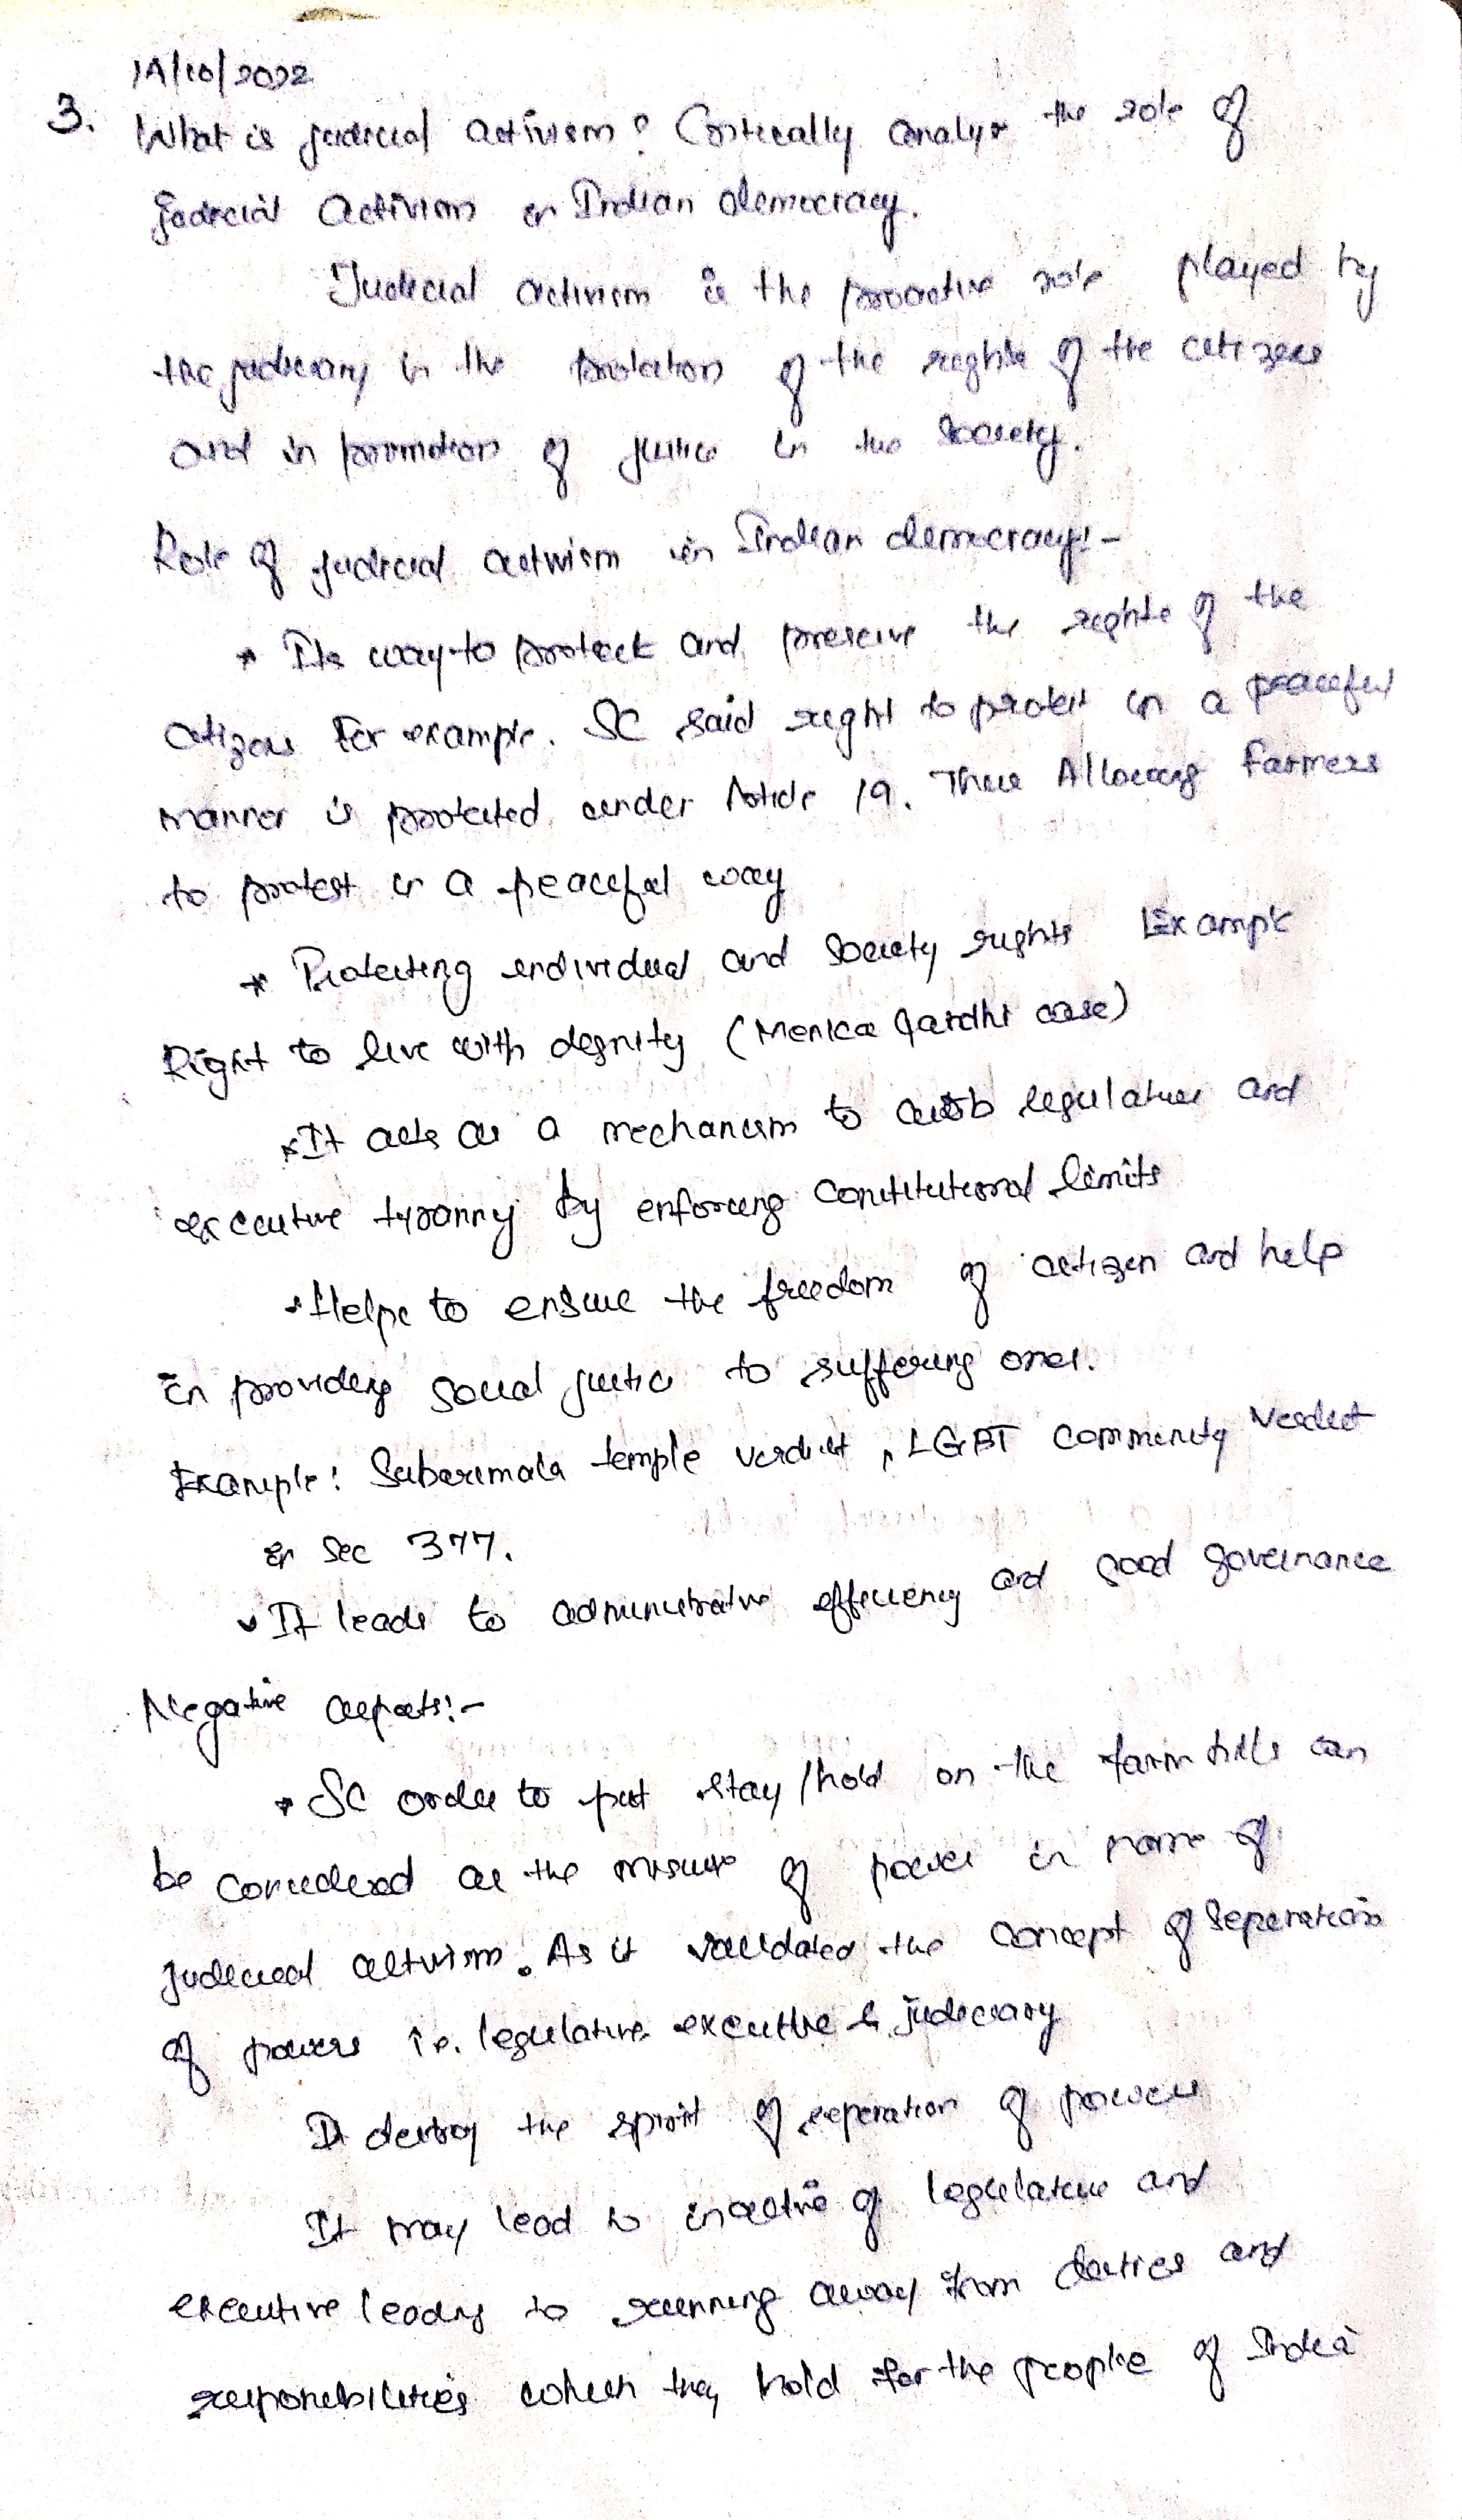 14/10/2022
3. What is judicial activism? Critically analyse the role of
judicial activism in Indian democracy.
Judicial activism is the proactive role played by
the judiciary in the protection of the rights of the citizens
and in promotion of justice in the society.
Role of judicial activism in Indian democracy:-
* Its way to protect and preserve the rights of the
citizens for example. SC said right to protest in a peaceful
manner is protected under Article 19. Thus Allowing farmers
to protest in a peaceful way
* Protecting individual and society rights Example
Right to live with dignity (Menica Gandhi case)
* It acts as a mechanism to curb legislature and
executive tyranny by enforcing constitutional limits
* Helps to ensure the freedom of citizen and help
in providing social justice to suffering ones.
Example: Sabarimala temple verdict, LGBT community verdict
& Sec 377.
* It leads to administrative efficiency and good governance
Negative aspects:-
* SC order to put stay/hold on the farm bills can
be considered as the misuse of power in name of
judicial activism. As it the concept of seperation
of powers i.e. legislature executive & judiciary
It destroy the spirit of seperation of powers
It may lead to inactive of legislature and
executive leading to running away from duties and
responsibilities which they hold for the people of India